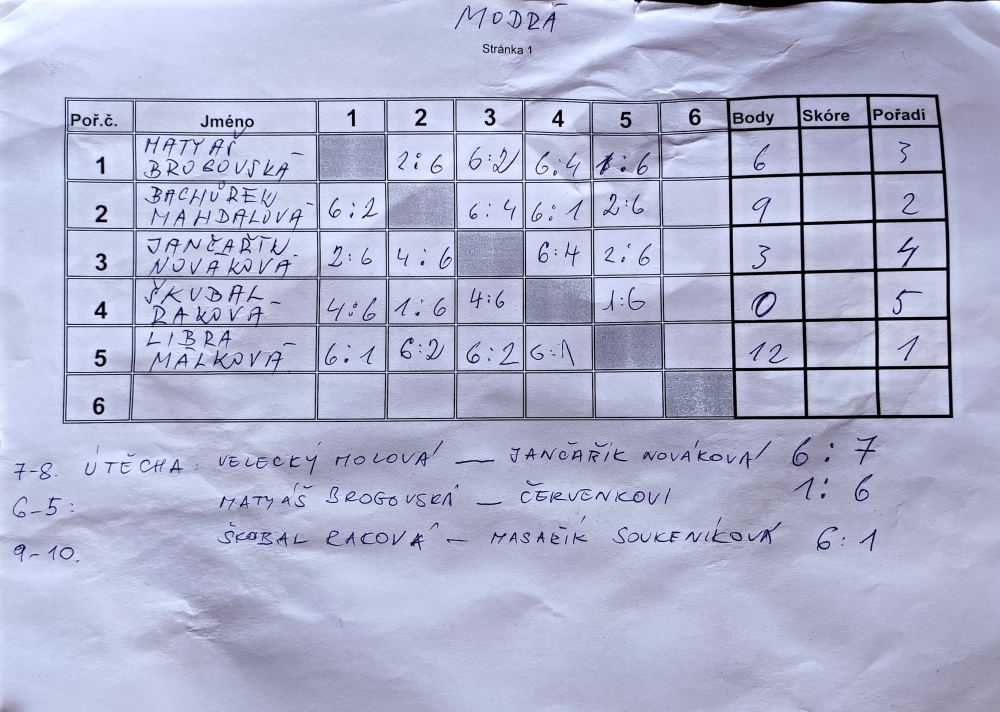 MODRÁ
Stránka 1
Poř.č. Jméno 1 2 3 4 5 6 Body Skóre Pořadí
1 MATYÁŠ BROGOVSKÁ 2:6 6:2 6:4 1:6 6 3
2 BACHŮREK MAHDALOVÁ 6:2 6:4 6:1 2:6 9 2
3 JANČAŘÍK NOVÁKOVÁ 2:6 4:6 6:4 2:6 3 4
4 ŠKUBAL RAKOVÁ 4:6 1:6 4:6 1:6 0 5
5 LIBRA MÁLKOVÁ 6:1 6:2 6:2 6:1 12 1
6
7-8. ÚTĚCHA: VELECKÝ MOLOVÁ — JANČAŘÍK NOVÁKOVÁ 6:7
6-5: MATYÁŠ BROGOVSKÁ — ČERVENKOVI 1:6
9-10. ŠKUBAL RACOVÁ - MASAŘÍK SOUKENÍKOVÁ 6:1